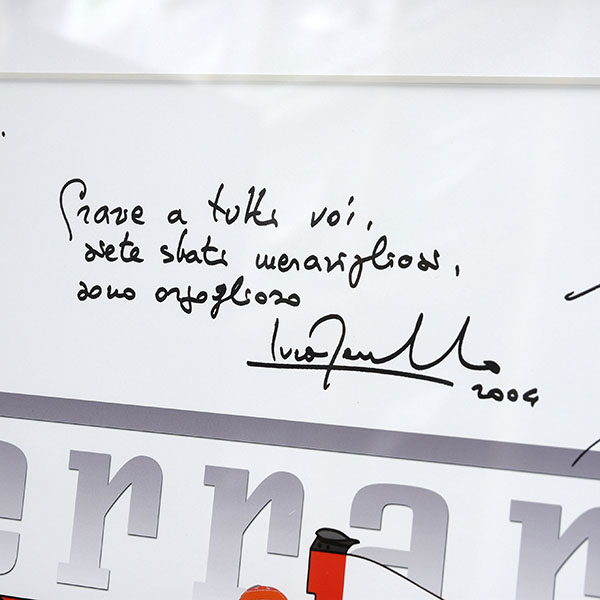 Grazie a tutti voi,
siete stati meravigliosi,
sono orgoglioso
2004
errar